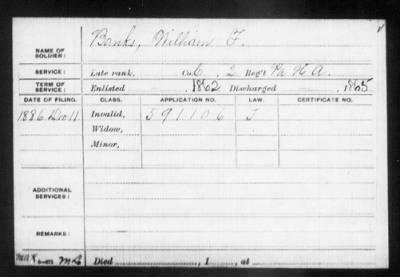 NAME OF SOLDIER: Banks, William F.
SERVICE: Late rank, Co. C, 2 Reg't Pa. H.A.
TERM OF SERVICE: Enlisted 1862 Discharged 1865
DATE OF FILING. CLASS. APPLICATION NO. LAW. CERTIFICATE NO.
1886 Dec 11 Invalid, 591106 J
Widow,
Minor,
ADDITIONAL SERVICES:
REMARKS:
Died , 1 , at